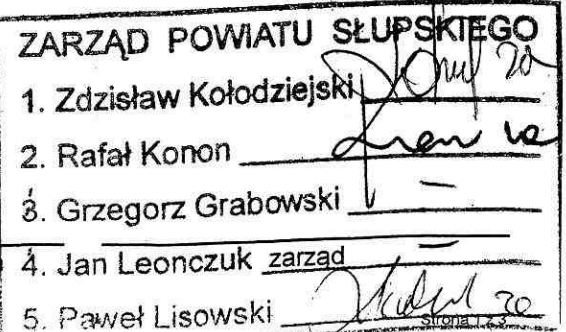 ZARZĄD POWIATU SŁUPSKIEGO
1. Zdzisław Kołodziejski
2. Rafał Konon
3. Grzegorz Grabowski —
4. Jan Leonczuk zarząd —
5. Paweł Lisowski
Strona 123